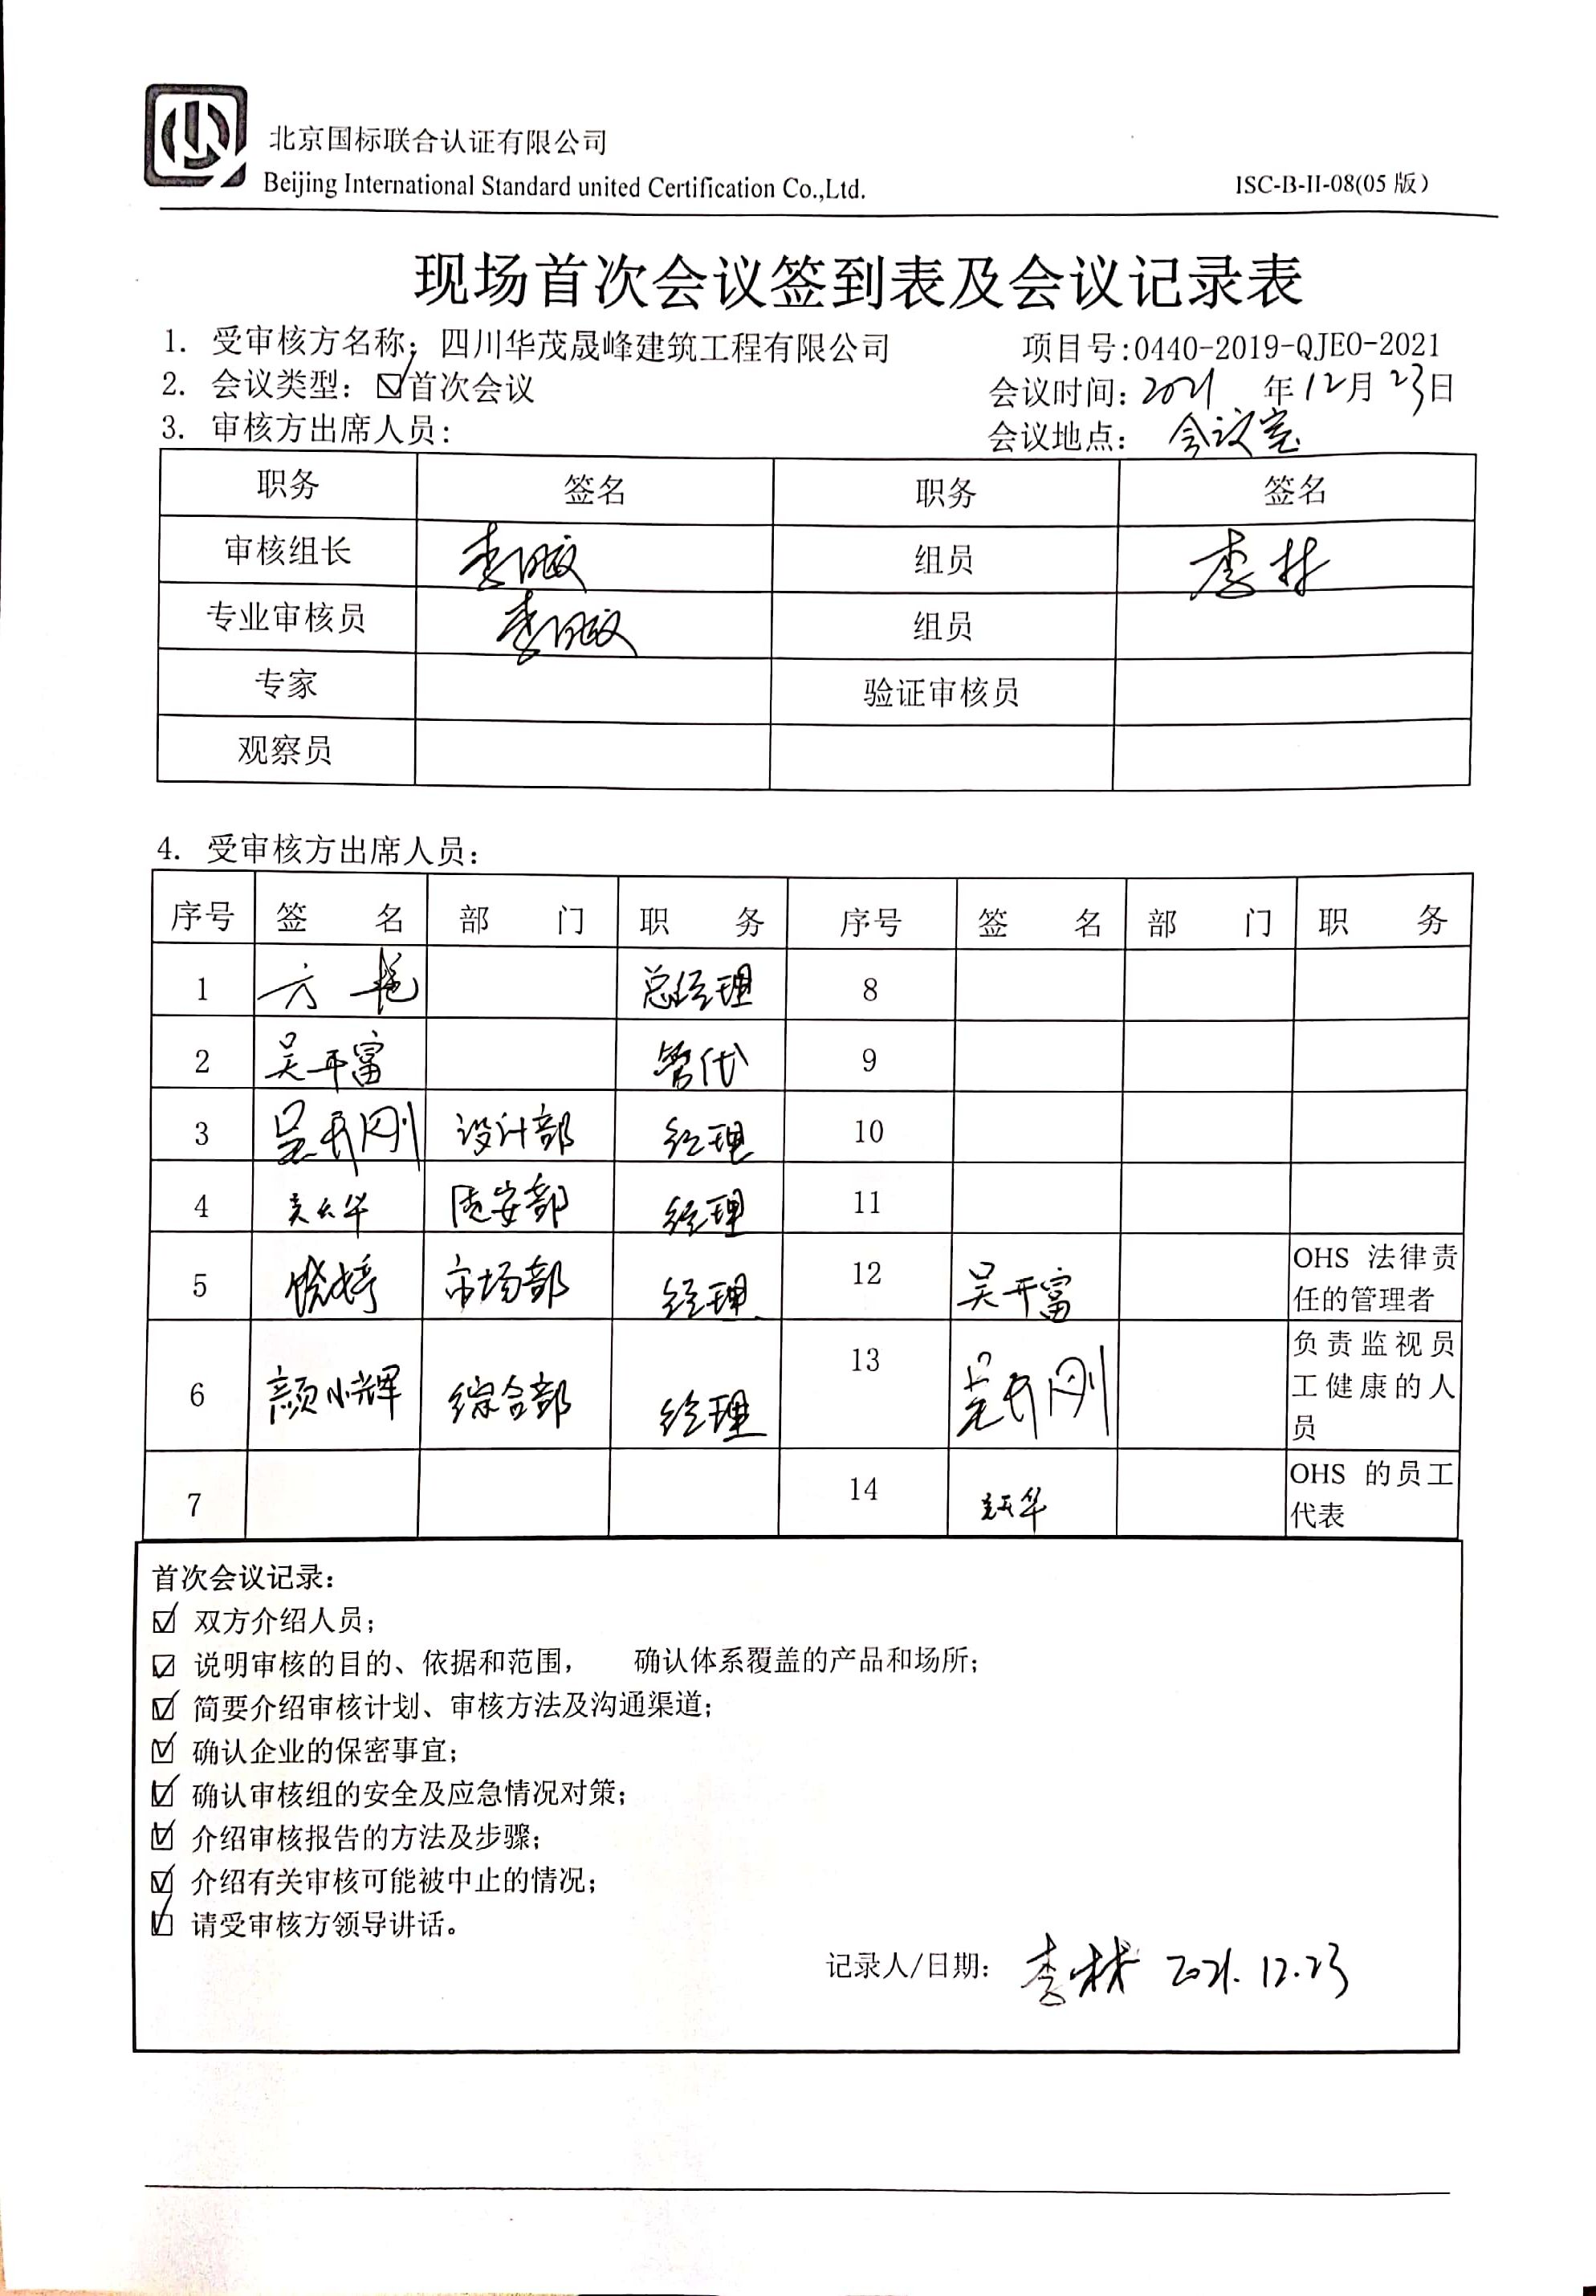 北京国标联合认证有限公司
Beijing International Standard united Certification Co.,Ltd.
ISC-B-II-08(05 版)
现场首次会议签到表及会议记录表
1. 受审核方名称：四川华茂晟峰建筑工程有限公司 项目号:0440-2019-QJEO-2021
2. 会议类型：☑首次会议 会议时间：2021 年12月23日
3. 审核方出席人员： 会议地点：会议室
职务 签名 职务 签名
审核组长 组员 李林
专业审核员 组员
专家 验证审核员
观察员
4. 受审核方出席人员：
序号 签 名 部 门 职 务 序号 签 名 部 门 职 务
1 方艳 总经理 8
2 吴开富 管代 9
3 设计部 经理 10
4 质安部 经理 11
5 市场部 经理 12 吴开富 OHS 法律责
任的管理者
6 颜小辉 综合部 经理 13 负责监视员
工健康的人
员
7 14 OHS 的员工
代表
首次会议记录：
☑ 双方介绍人员；
☑ 说明审核的目的、依据和范围， 确认体系覆盖的产品和场所；
☑ 简要介绍审核计划、审核方法及沟通渠道；
☑ 确认企业的保密事宜；
☑ 确认审核组的安全及应急情况对策；
☑ 介绍审核报告的方法及步骤；
☑ 介绍有关审核可能被中止的情况；
☑ 请受审核方领导讲话。
记录人/日期： 李林 2021.12.23